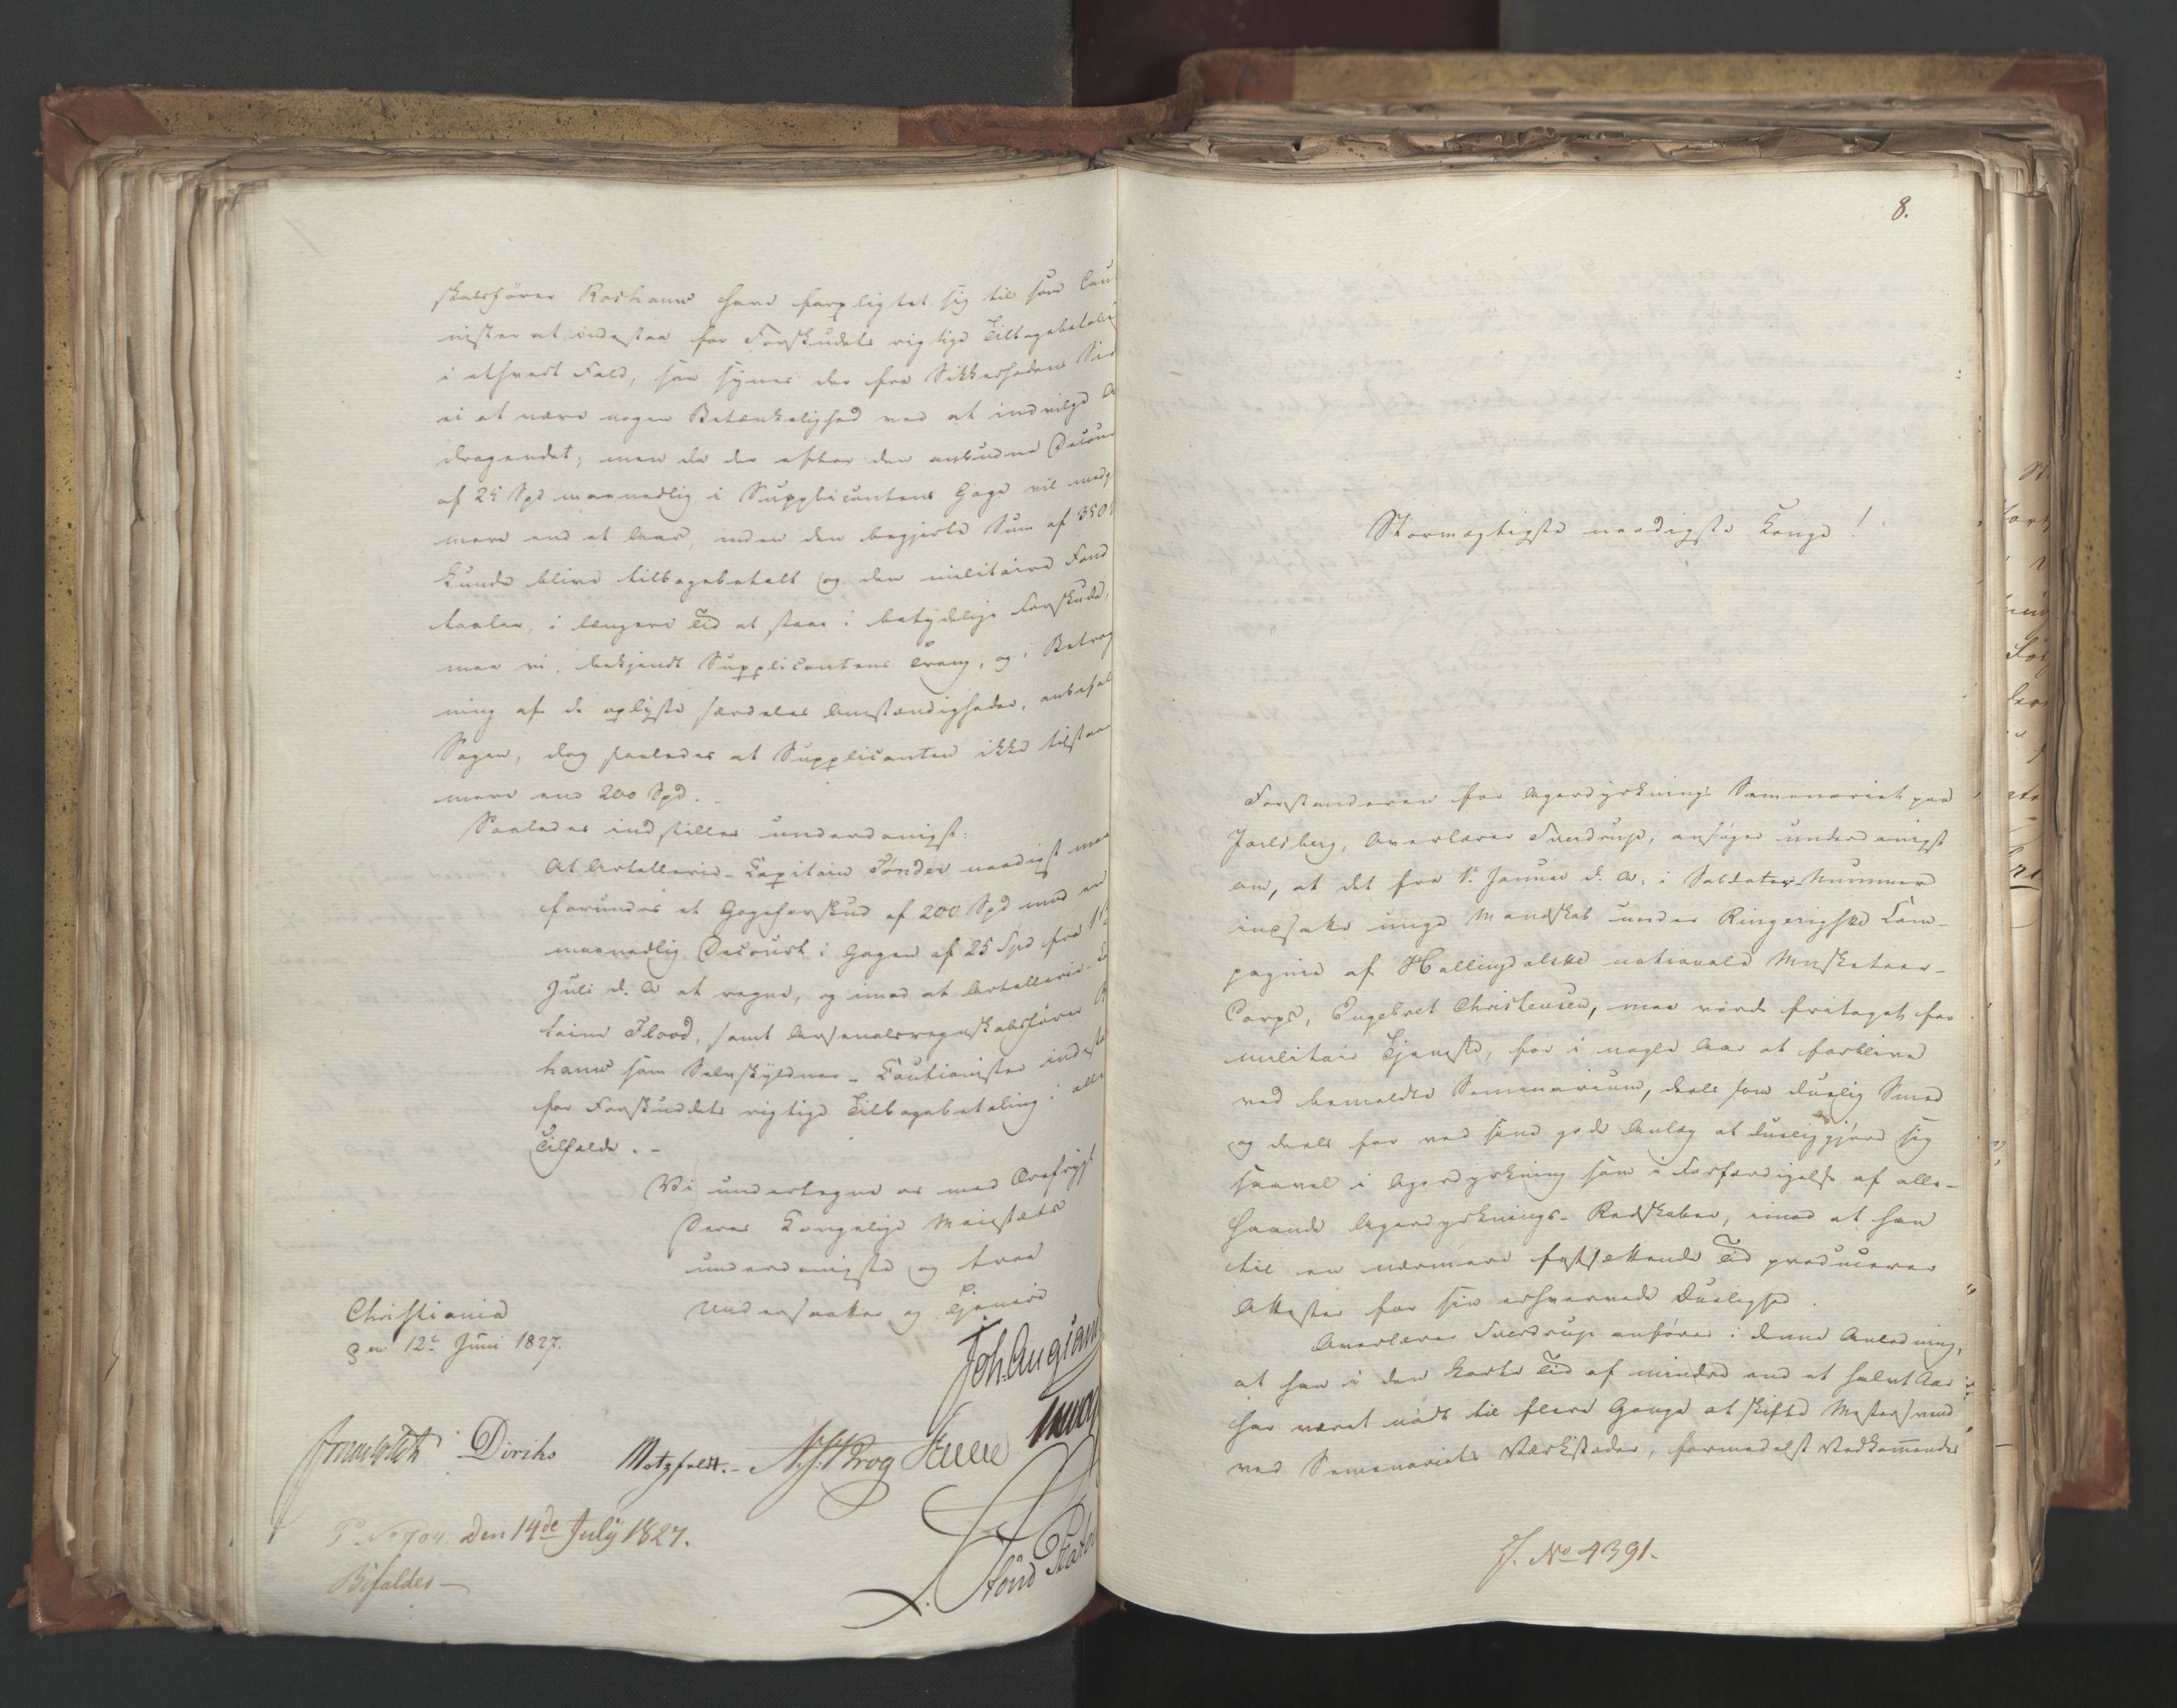 skabsfører Roshauw have forpligtet sig til som Cau-
nister at indestaa for Forskudets rigtige Tilbagebetaling
i ethvert Fald, saa synes der fra Sikkerhedens Side
ei at være nogen Betænkelighed ved at indvilge An-
dragendet; men da der efter den anbudne Decourt
af 25 Spd maanedlig i Supplicantens Gage vil medgaa
mere end et Aar, inden den begjerte Sum af 350
kunde blive tilbagebetalt og den militaire Fond
taaler, i længere Tid at staae i betydelige Forskude,
maa vi, bekjendt Supplicantens Trang, og i Betrag-
ning af de oplyste særdeles Omstændigheder, anbefale
Sagen, dog saaledes at Supplicanten ikke tilstaaes
mere end 200 Spd. -
Saaledes indstilles underdanigst:
At Artillerie-Capitain Tønder naadigst maa
forundes et Gageforskud af 200 Spd mod en
maanedlig Decourt i Gagen af 25 Spd fra 1ste
Juli d. A. at regne, og imod at Artillerie-
taine Flood, samt Arsenalsregnskabsfører
hauw som Selvskyldner-Cautionister indestaa
for Forskuddets rigtige Tilbagebetaling i alle
Tilfælde. -
Vi undertegne os med Ærefrygt
Deres Kongelige Majestæts
underdanigste og troe
Undersaatter og Tjenere
Christiania
den 12te Juni 1827.
Diriks Motzfeldt. - N. J. Krog
No 704 Den 14de July 1827.
Bifaldes -
8.
Stormægtigste naadigste Konge!
Forstanderen for Agerdyrknings Semenariet paa
Jarlsberg, Overlærer Sverdrup, ansøger underdanigst
om, at det fra 1. Januar d. A. i Soldater-Nummer
indsatte unge Mandskab under Ringerigske Com-
pagnie af Hallingdalske nationale Musketeer-
Corps, Engebret Christensen, maa vorde fritaget for
militair Tjeneste, for i nogle Aar at forblive
ved bemeldte Semenarium, deels som duelig Smed
og deels for ved sine gode Anlæg at dueliggjøre sig
saavel i Agerdyrkning som i Forfærdigelse af alle-
haande Agerdyrknings-Redskaber, imod at han
til en nærmere fastsættende Tid producerer
Attester for sin erhvervede Duelighed.
Overlærer Sverdrup anfører i denne Anledning,
at han i den korte Tid af mindre end et halvt Aar
har været nødt til flere Gange at skifte Mestersvend
ved Semenariets Værksteder, formedelst Vedkommendes
J. No 4391.